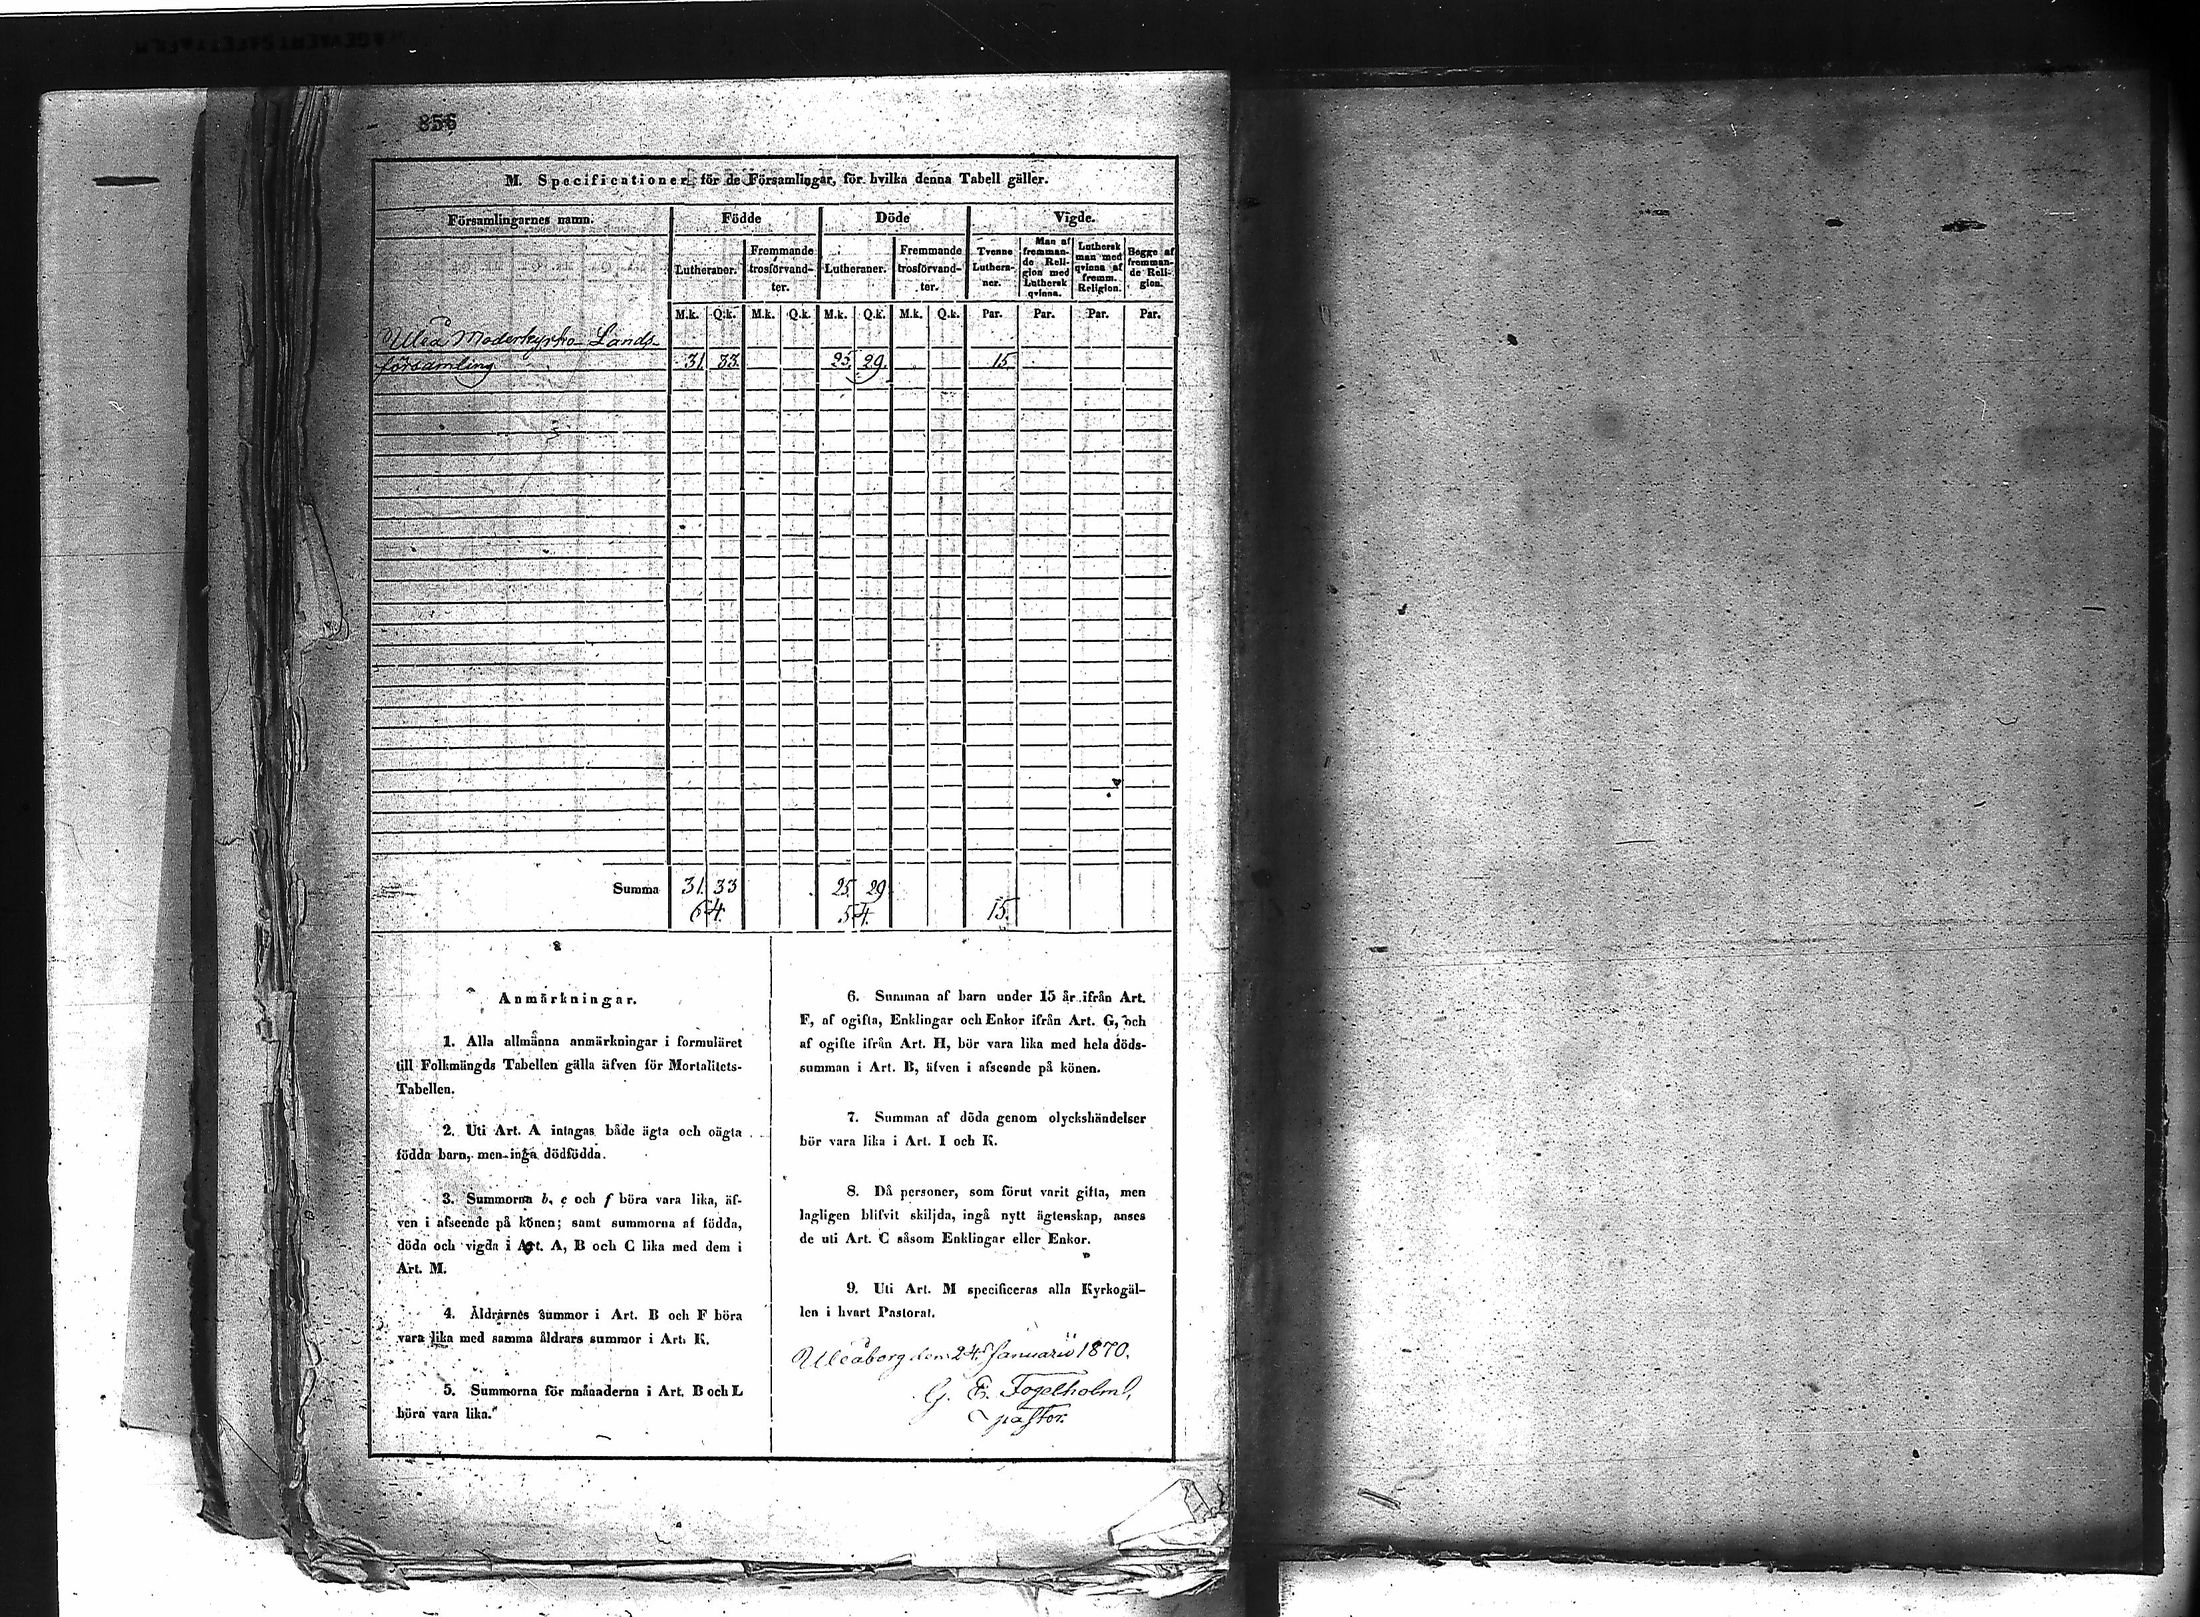 856
M. Specificationer för de Församlingar, för hvilka denna Tabell gäller.
Församlingarnes namn. Födde Döde Vigde.
Lutheraner. Fremmande trosförvandter. Lutheraner. Fremmande trosförvandter. Tvenne Lutheraner. Man af fremmande Religion med Luthersk qvinna. Luthersk man med qvinna af fremm. Religion. Begge af fremmande Religion.
M.k. Q.k. M.k. Q.k. M.k. Q.k. M.k. Q.k. Par. Par. Par. Par.
Uleå Moderkyrko Lands-
församling 31. 33. 25. 29. 15.
Summa 31. 33 25. 29.
64. 54. 15.
Anmärkningar.
1. Alla allmänna anmärkningar i formuläret
till Folkmängds Tabellen gälla äfven för Mortalitets-
Tabellen.
2. Uti Art. A intagas både ägta och oägta
födda barn, men inga dödfödda.
3. Summorna b, e och f böra vara lika, äf-
ven i afseende på könen; samt summorna af födda,
döda och vigda i Art. A, B och C lika med dem i
Art. M.
4. Åldrarnes summor i Art. B och F böra
vara lika med samma åldrars summor i Art. K.
5. Summorna för månaderna i Art. B och L
böra vara lika.
6. Summan af barn under 15 år ifrån Art.
F, af ogifta, Enklingar och Enkor ifrån Art. G, och
af ogifte ifrån Art. H, bör vara lika med hela döds-
summan i Art. B, äfven i afseende på könen.
7. Summan af döda genom olyckshändelser
bör vara lika i Art. I och K.
8. Då personer, som förut varit gifta, men
lagligen blifvit skiljda, ingå nytt ägtenskap, anses
de uti Art. C såsom Enklingar eller Enkor.
9. Uti Art. M specificeras alla Kyrkogäl-
len i hvart Pastorat.
Uleåborg den 24. Januarii 1870.
G. Fr. Fogelholm,
pastor.